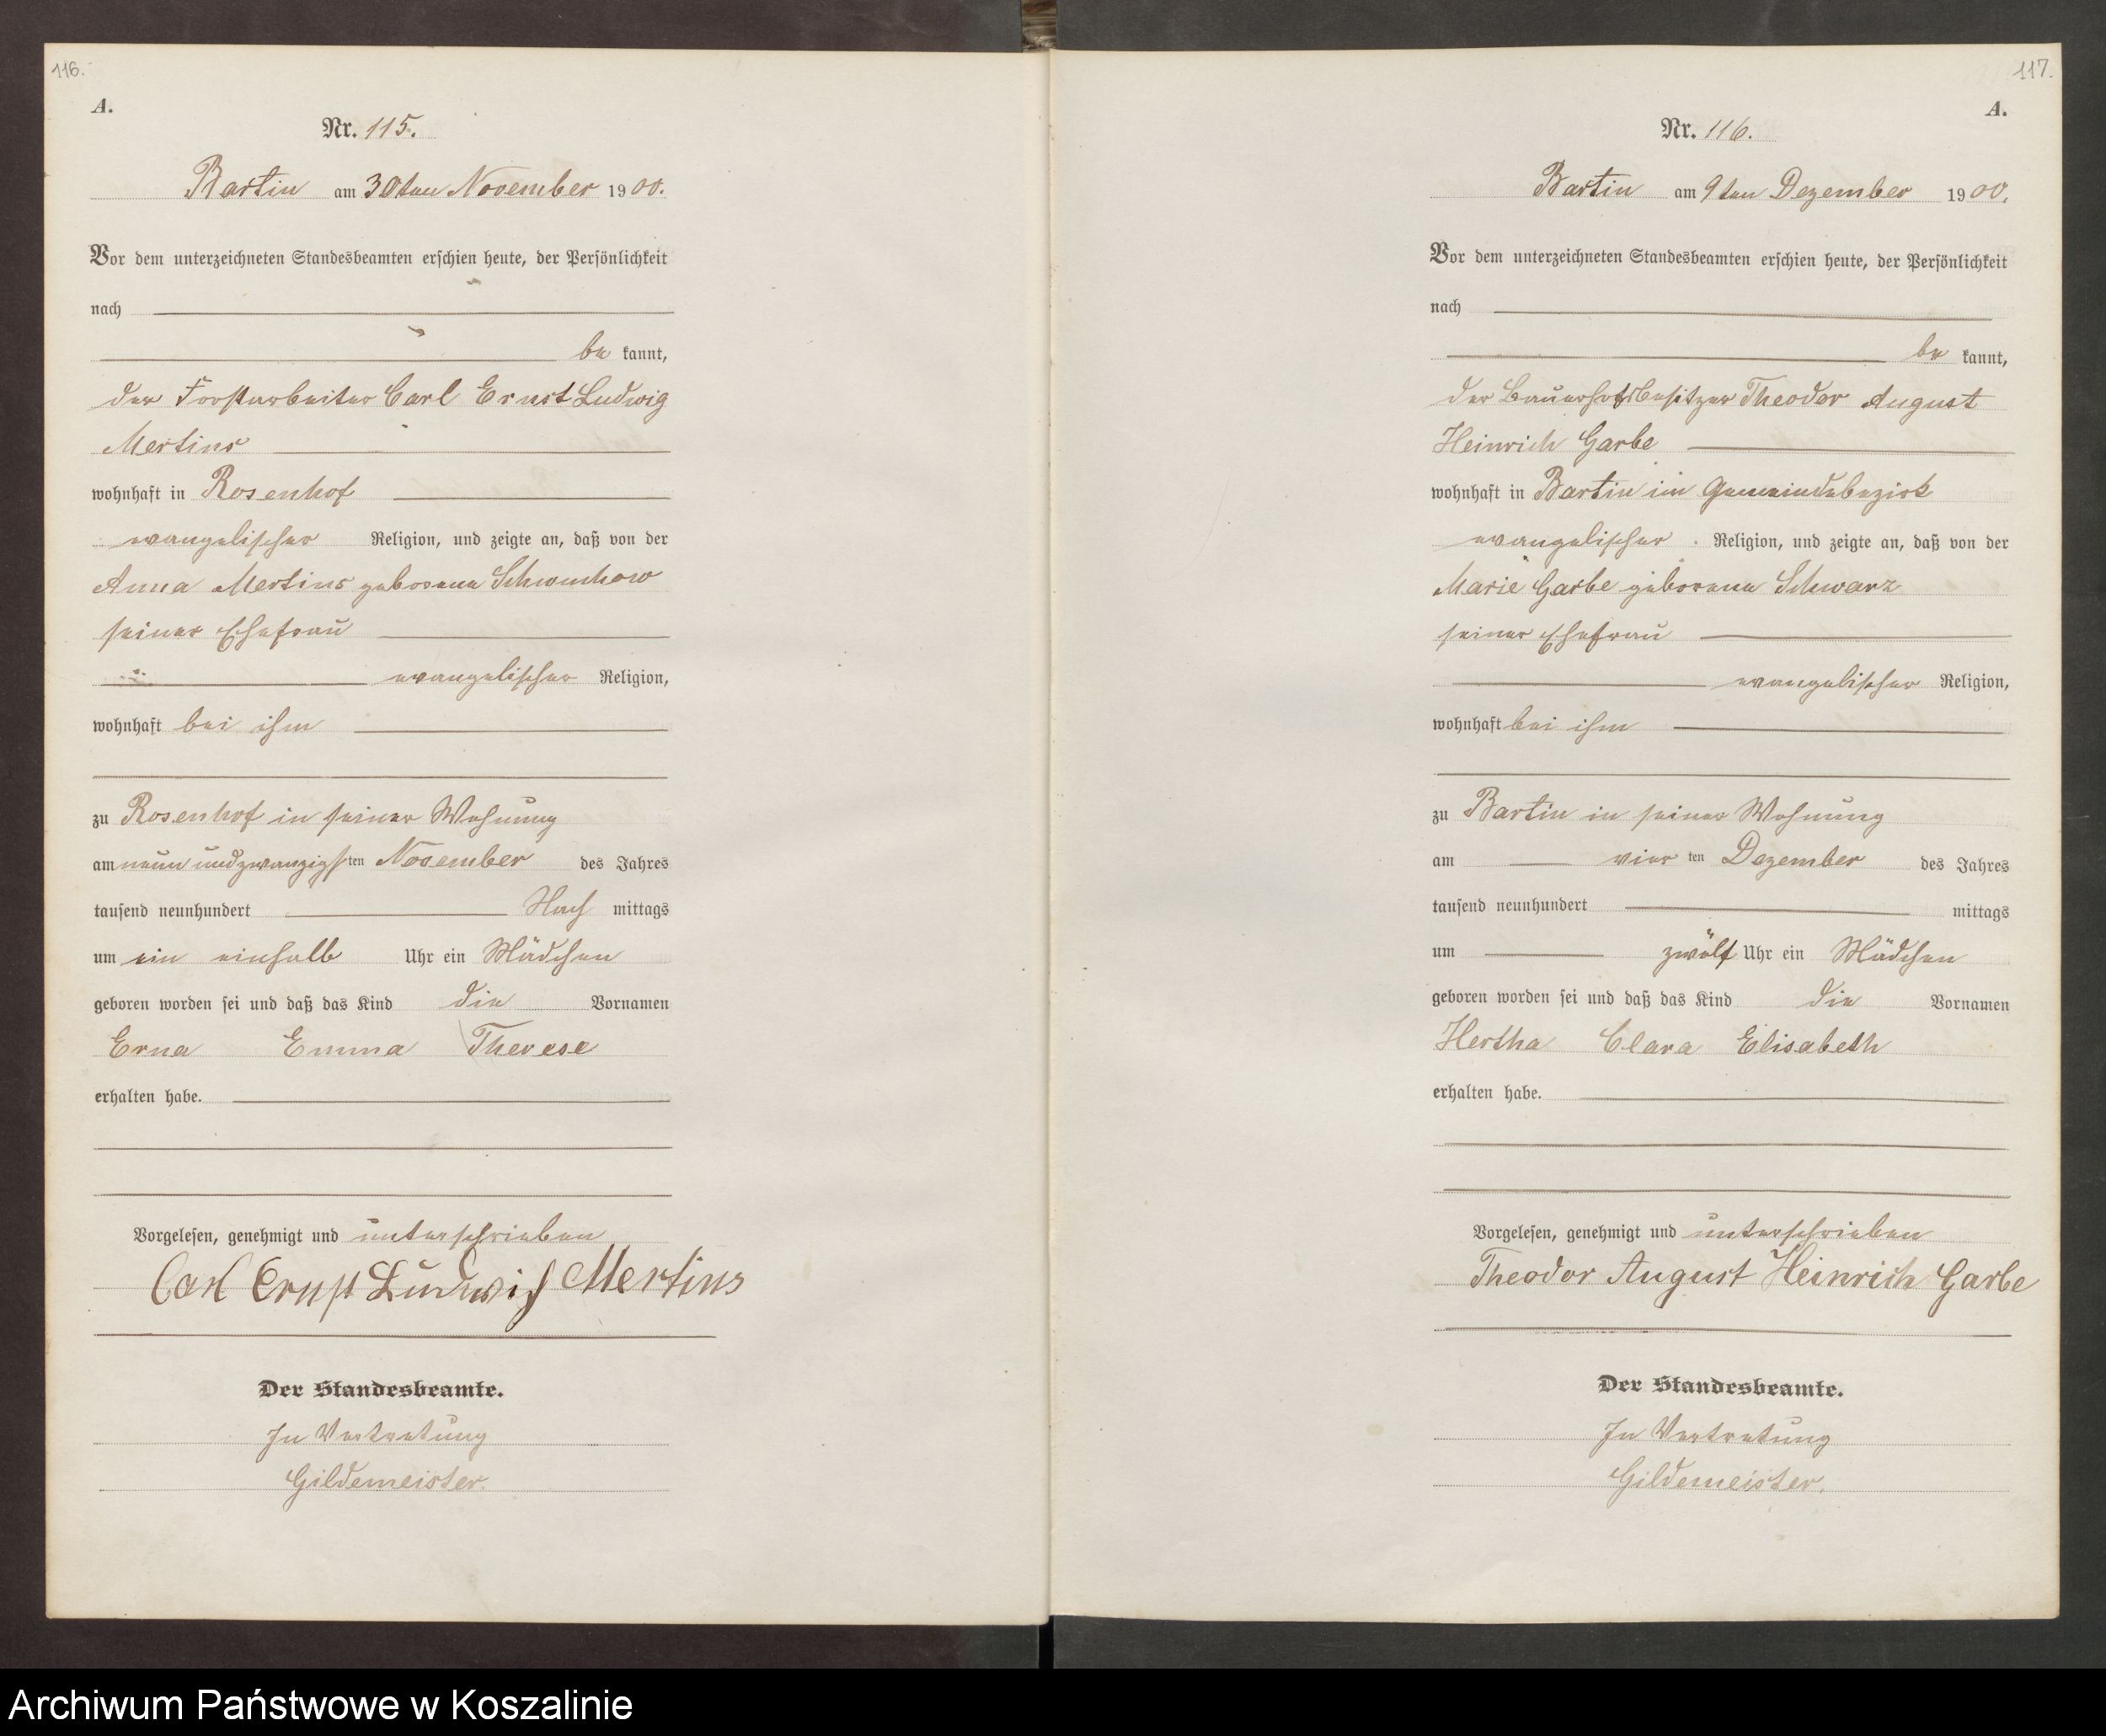 116.
A.
Nr. 115.
Bartin am 30ten November 1900.
Vor dem unterzeichneten Standesbeamten erschien heute, der Persönlichkeit
nach
be kannt,
der Forstarbeiter Carl Ernst Ludwig
Mertins
wohnhaft in Rosenhof
evangelischer Religion, und zeigte an, daß von der
Anna Mertins geborene Schwuchow
seiner Ehefrau
evangelischer Religion,
wohnhaft bei ihm
zu Rosenhof in seiner Wohnung
am neun und zwanzigsten November des Jahres
tausend neunhundert Nach mittags
um ein einhalb Uhr ein Mädchen
geboren worden sei und daß das Kind die Vornamen
Erna Emma Therese
erhalten habe.
Vorgelesen, genehmigt und unterschrieben
Carl Ernst Ludwig Mertins
Der Standesbeamte.
In Vertretung
Gildemeister.
117.
A.
Nr. 116.
Bartin am 9ten Dezember 1900.
Vor dem unterzeichneten Standesbeamten erschien heute, der Persönlichkeit
nach
be kannt,
der Bauerhofsbesitzer Theodor August
Heinrich Garbe
wohnhaft in Bartin im Gemeindebezirk
evangelischer Religion, und zeigte an, daß von der
Marie Garbe geborene Schwarz
seiner Ehefrau
evangelischer Religion,
wohnhaft bei ihm
zu Bartin in seiner Wohnung
am vier ten Dezember des Jahres
tausend neunhundert mittags
um zwölf Uhr ein Mädchen
geboren worden sei und daß das Kind die Vornamen
Hertha Clara Elisabeth
erhalten habe.
Vorgelesen, genehmigt und unterschrieben
Theodor August Heinrich Garbe
Der Standesbeamte.
In Vertretung
Gildemeister.
Archiwum Państwowe w Koszalinie